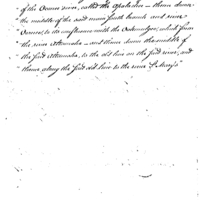 of the Oconee river, called the Apalachee — thence down
"the middle of the said main south branch and river
"Oconee, to its confluence with the Oakmulgee, which form
"the river Altamaha — and thence down the middle of
"the said Altamaha, to the old line on the said river, and
"thence along the said old line to the river St Mary's